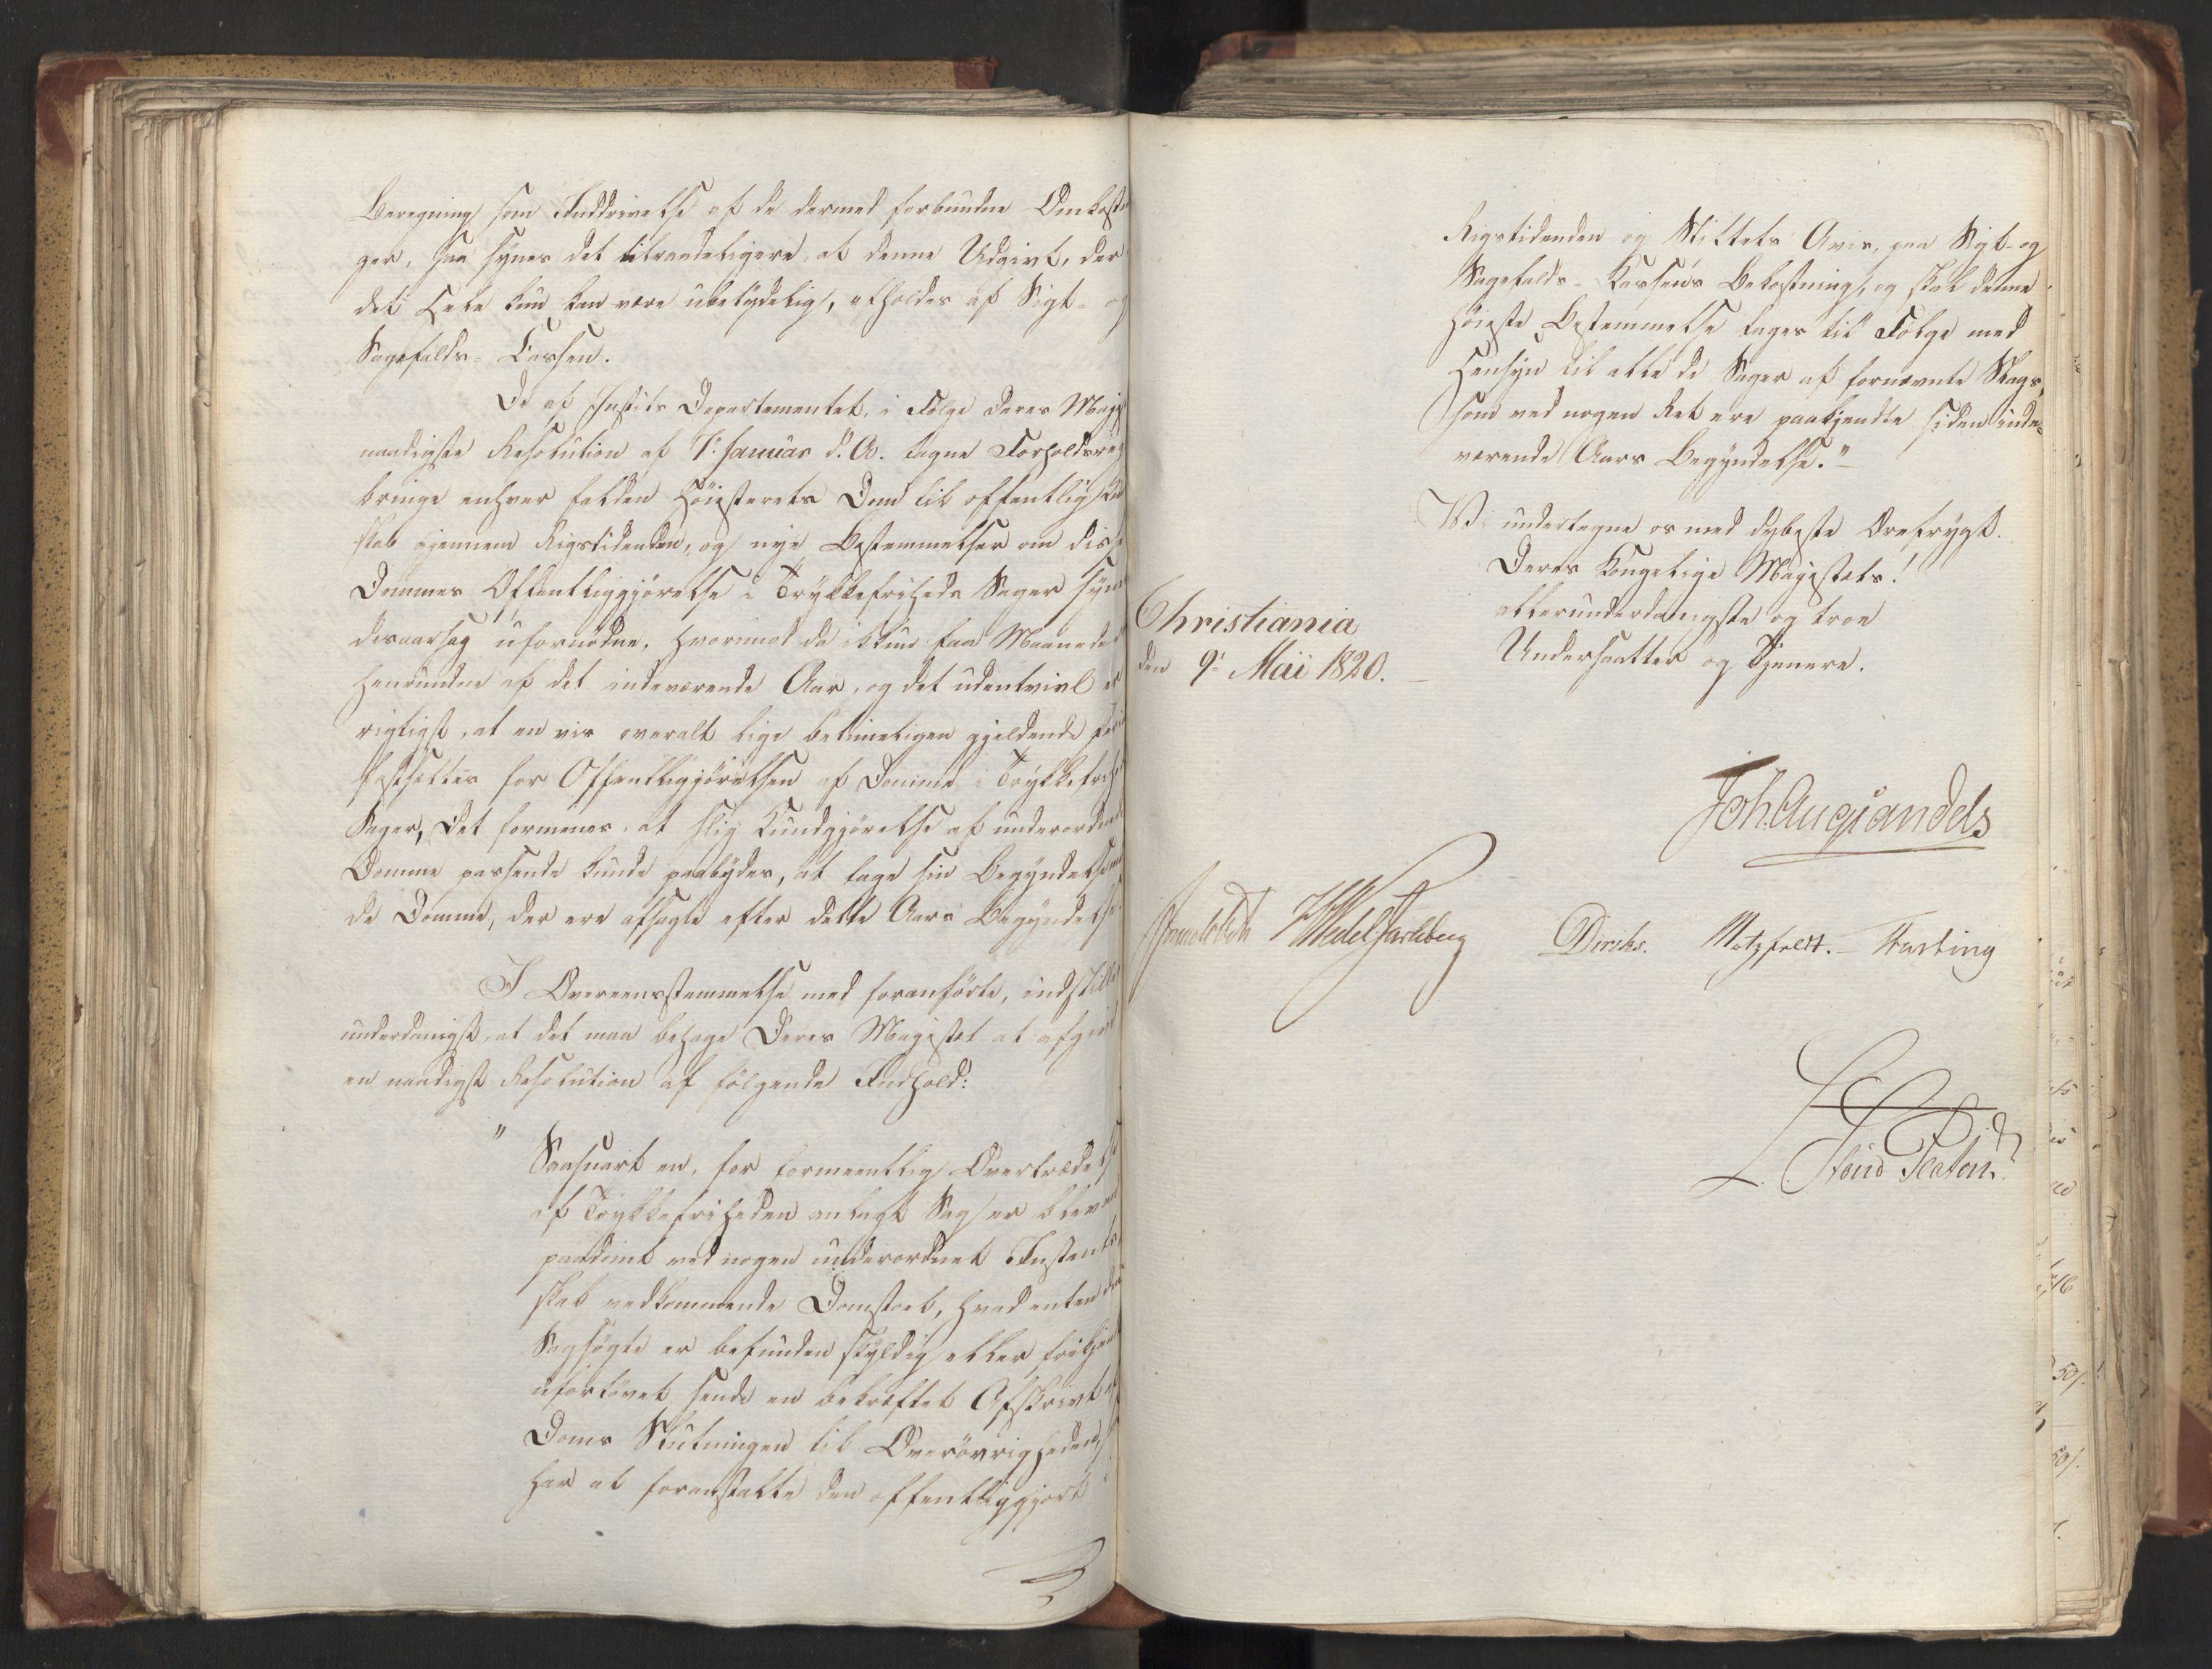 Beregning som Inddrivelse af de dermed forbundne Omkostn
ger, saa synes det tilraadeligere, at denne Udgivt, der
det hele kun kan være ubetydelig, afholdes af Sigt- og
Sagefalds- Cassen.
De af Justits Departementet, i Følge Deres Maj
naadigste Resolution af 7' Januar d. A. tagne Forholdsreg
bringe enhver falden Høiesterets Dom til offentlig Kund
skab gjennem Rigstidenden, og nye Bestemmelser om disse
Dommes Offentliggjørelse i Trykkefriheds Sager syne
desaarsag ufornødne, hvorimod da ikkun faa Maaneder
henrundne af det indeværende Aar, og det udentvivl er
rigtigst, at en vis overalt lige betimeligen gjeldende
fastsættes for Offentliggjørelsen af Domme i Trykkefrihed
Sager, Det formenes, at slig Kundgjørelse af underordnede
Domme passende kunde paabydes, at tage sin Begyndelse med
de Domme, der ere afsagte efter dette Aars Begyndelse.
I Overeensstemmelse med foranførte, indstilles
underdanigst, at det maa behage Deres Majestæt at afgive
en naadigst Resolution af følgende Indhold:
" Saasnart en, for formeentlig Overtrædelse
af Trykkefriheden anlagt Sag er bleven
paadømt ved nogen underordnet Instants,
skal vedkommende Domstoel, hvad enten den
Sagsøgte er befunden skyldig eller frikjendt
ufortøvet sende en bekræftet Afskrivt af
Doms Slutningen til Overøvrigheden,
har at foranstalte den offentliggjort i
Rigstidenden og Stiftets Avis, paa Sigt- og
Sagefalds- Kassens Bekostning, og skal denne
høieste Bestemmelse tages til Følge med
Hensyn til alle de Sager af fornævnte Slags,
som ved nogen Ret ere paakjendte siden inde-
værende Aars Begyndelse."
Vi undertegne os med dybeste Ærefrygt.
Deres Kongelige Majestæts!
allerunderdanigste og troe
Undersaatter og Tjenere.
Christiania
den 9' Mai 1820.
Joh. Aug. Sandels
HWedel Jarlsberg Diriks. Motzfeldt.
Platou